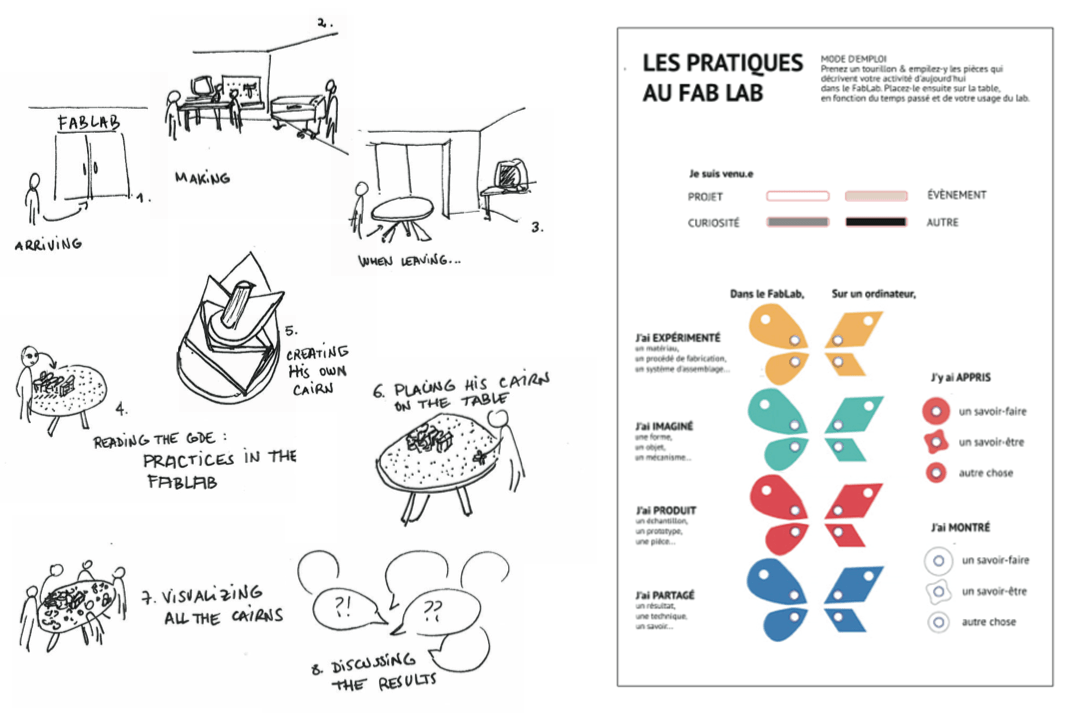 FABLAB
1.
ARRIVING
2.
MAKING
3.
WHEN LEAVING...
4.
READING THE CODE :
PRACTICES IN THE
FABLAB
5.
CREATING
HIS OWN
CAIRN
6. PLACING HIS CAIRN
ON THE TABLE
7. VISUALIZING
ALL THE CAIRNS
?!
??
8. DISCUSSING
THE RESULTS
LES PRATIQUES
AU FAB LAB
MODE D'EMPLOI
Prenez un tourillon & empilez-y les pièces qui
décrivent votre activité d'aujourd'hui
dans le FabLab. Placez-le ensuite sur la table,
en fonction du temps passé et de votre usage du lab.
Je suis venu.e
PROJET
ÉVÈNEMENT
CURIOSITÉ
AUTRE
Dans le FabLab,
Sur un ordinateur,
J'ai EXPÉRIMENTÉ
un matériau,
un procédé de fabrication,
un système d'assemblage...
J'ai IMAGINÉ
une forme,
un objet,
un mécanisme...
J'ai PRODUIT
un échantillon,
un prototype,
une pièce...
J'ai PARTAGÉ
un résultat,
une technique,
un savoir...
J'y ai APPRIS
un savoir-faire
un savoir-être
autre chose
J'ai MONTRÉ
un savoir-faire
un savoir-être
autre chose